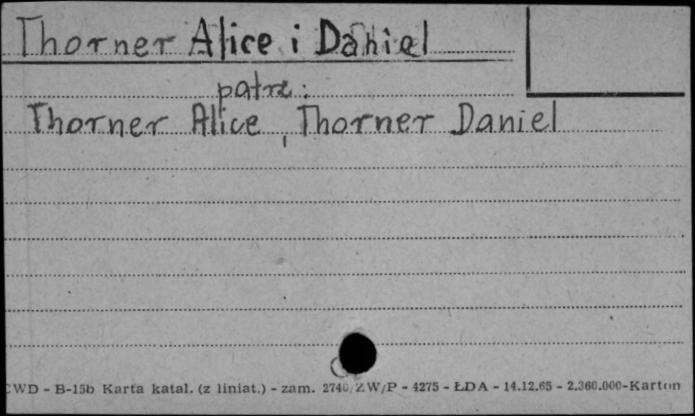 Thorner Alice i Daniel
patrz:
Thorner Alice, Thorner Daniel
CWD - B-15b Karta katal. (z liniat.) - zam. 2740/ZW/P - 4275 - ŁDA - 14.12.65 - 2.360.000-Karton